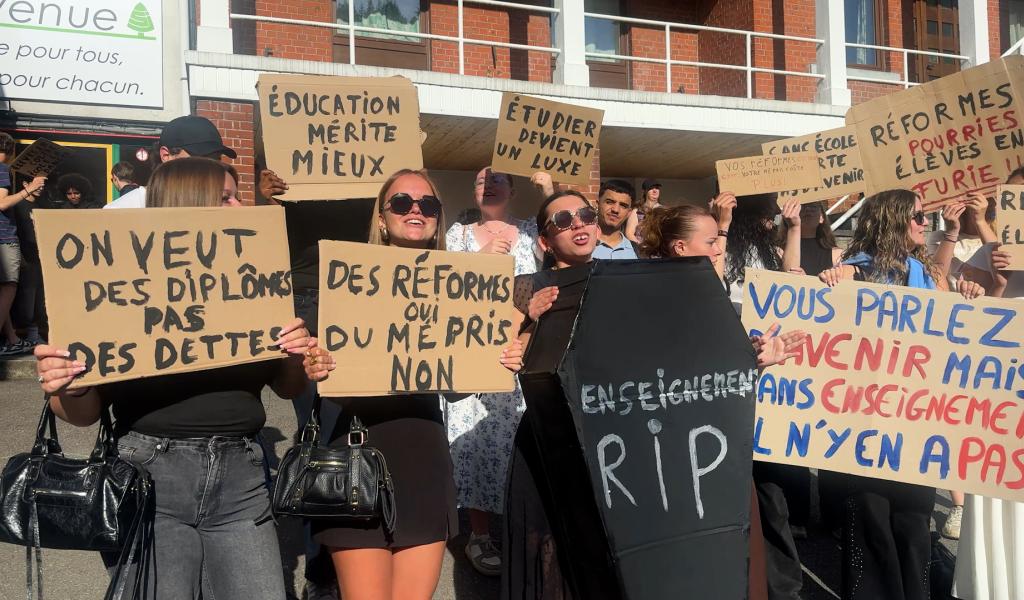 venue
e pour tous,
pour chacun.
ÉDUCATION
MÉRITE
MIEUX
ÉTUDIER
DEVIENT
UN LUXE
ON VEUT
DES DIPLÔMES
PAS
DES DETTES
DES RÉFORMES
OUI
DU MÉPRIS
NON
ENSEIGNEMENT
RiP
VOS RÉFORMES
VOTRE MÉPRIS
PLUS!
SANS ÉCOLE
AVENIR
RÉFORMES
POURRIES
ÉLÈVES EN
FURIE
VOUS PARLEZ
AVENIR MAIS
SANS ENSEIGNEMEN
IL N'Y EN A PAS